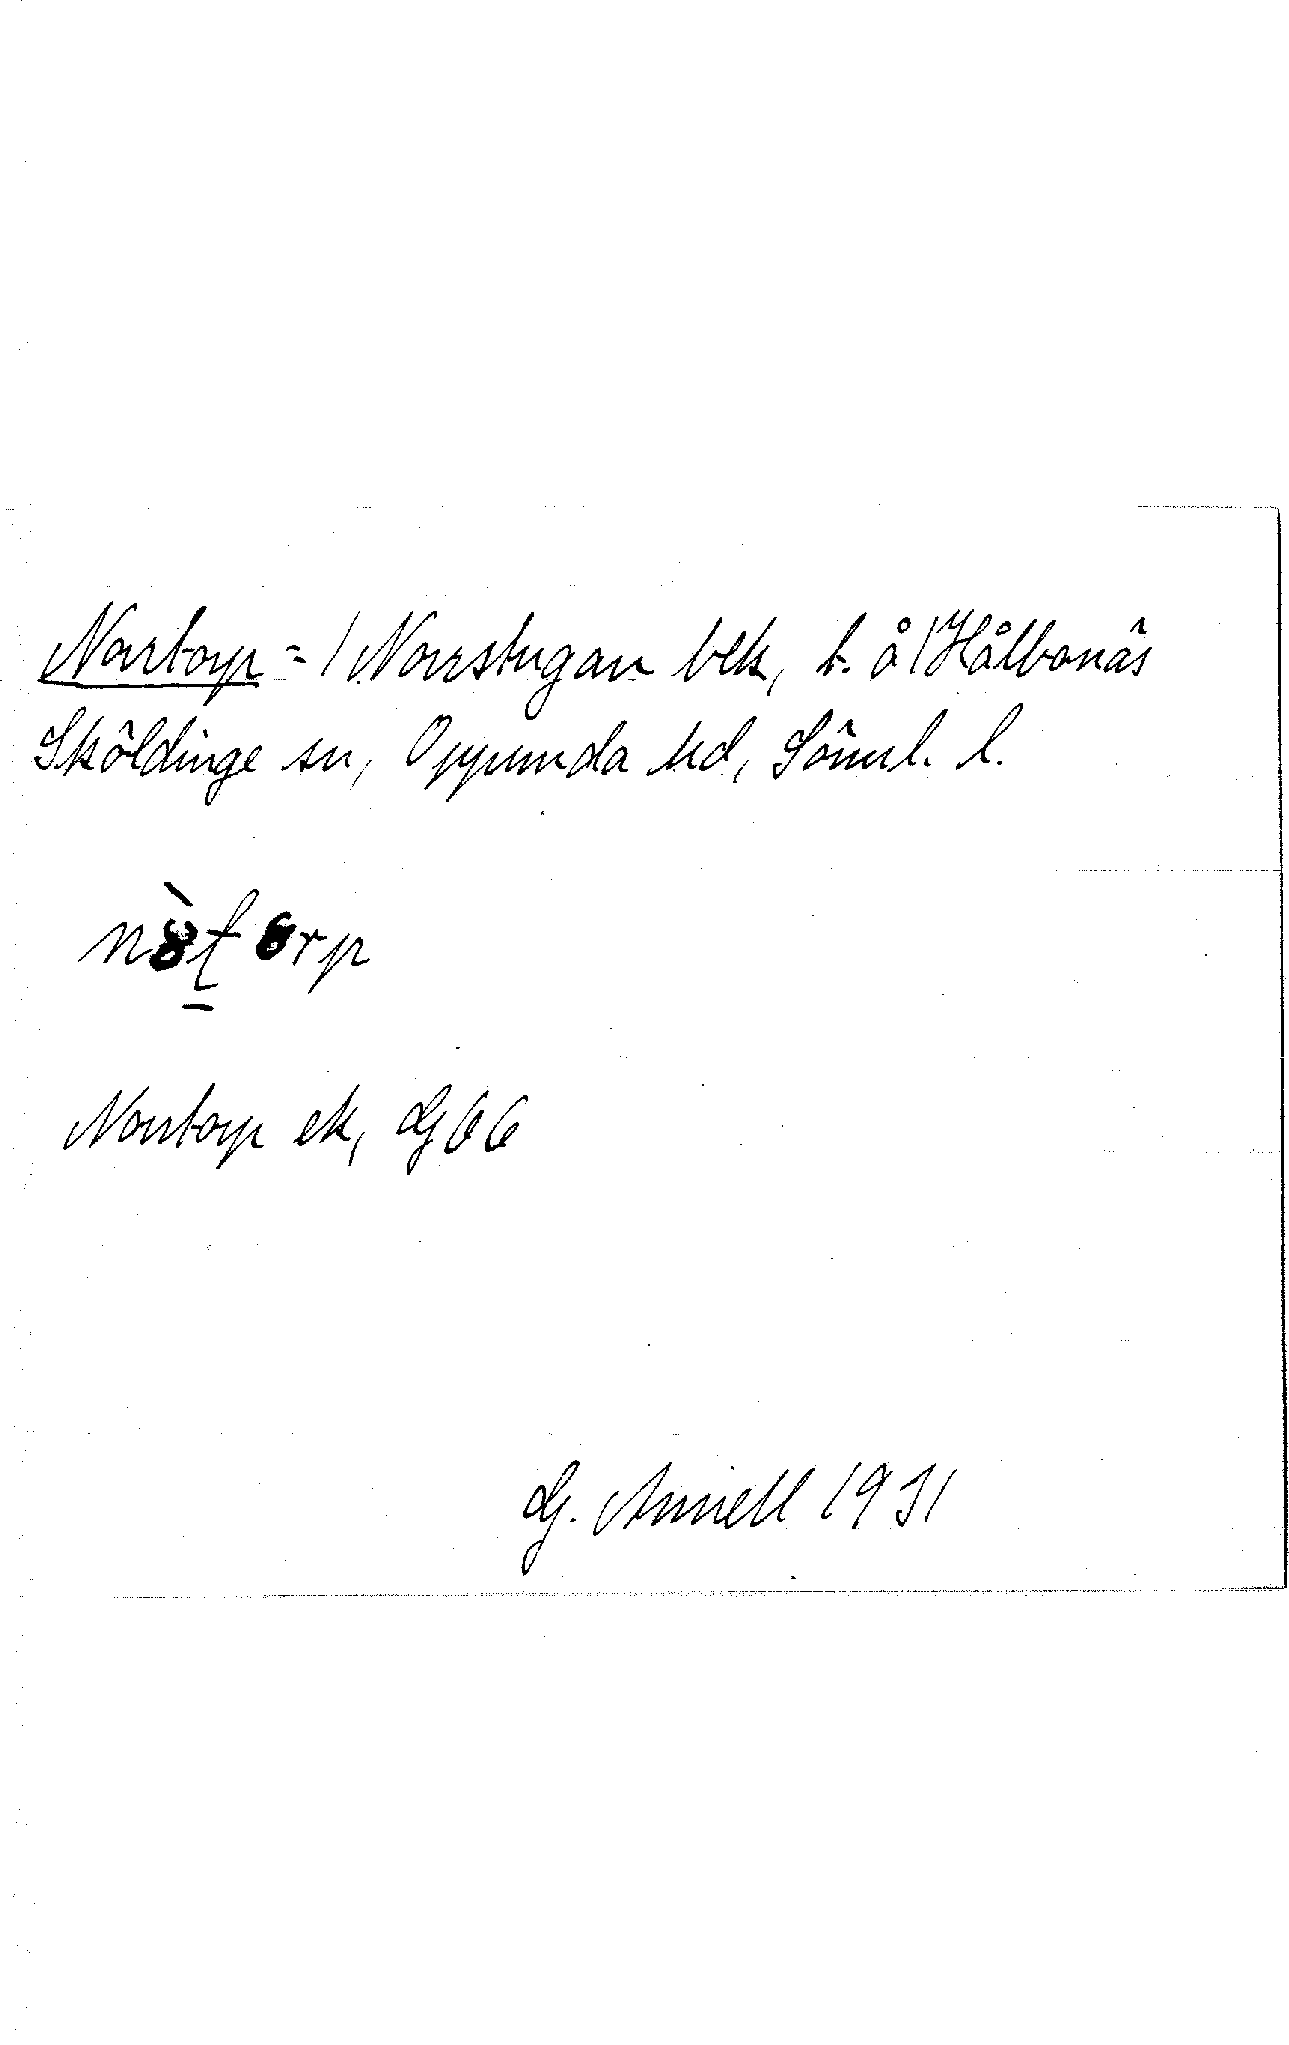 Norrtorp = / Norrstugan blk, t. å / Hålbonäs
Sköldinge sn, Oppunda hd, Söml. l.
Norrtorp ek, G66
G. Annell 1931